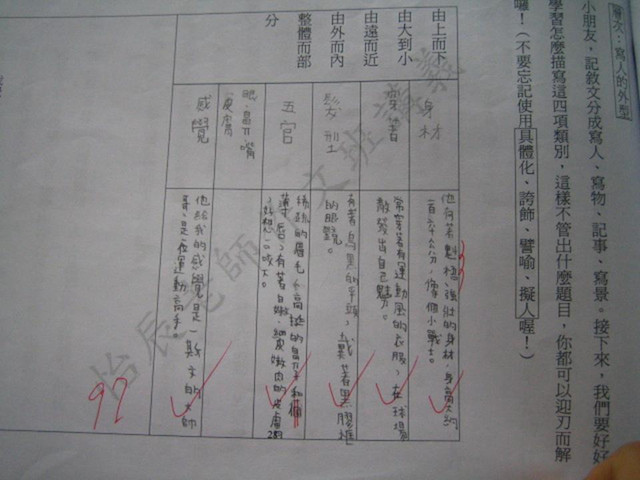 範文：寫人的外型
小朋友，記敘文分成寫人、寫物、記事、寫景。接下來，我們要好好
學習怎麼描寫這四項類別，這樣不管出什麼題目，你都可以迎刃而解
囉！（不要忘記使用具體化、誇飾、譬喻、擬人喔！）
由上而下
由大到小
由遠而近
由外而內
整體而部
分
身材
穿著
髮型
五官
眼、鼻、嘴
皮膚
感覺
他有著魁梧、強壯的身材，身高大約
一百六十公分，像個小戰士。
常穿著有運動風的衣服，在球場
散發出自己魅力。
有著烏黑的平頭，戴著黑膠框
的眼鏡。
精緻的眉毛，高挺的鼻子和
薄唇，有著白嫩、細皮嫩肉的皮膚
好想一口咬下。
他給我的感覺是一斯文的大帥
哥，是一位運動高手。
97
怡辰老師 文班講義